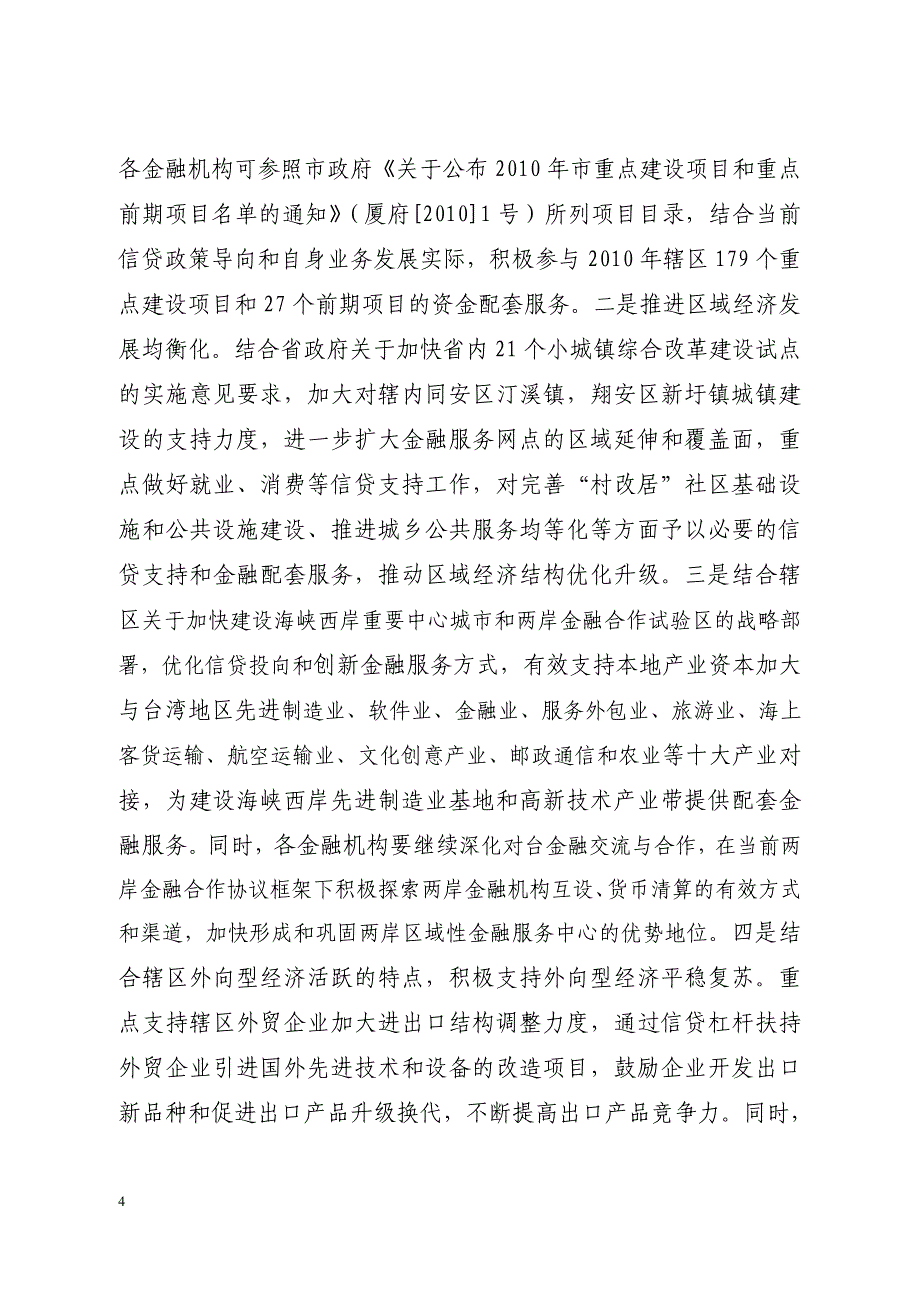 各金融机构可参照市政府《关于公布 2010 年市重点建设项目和重点
前期项目名单的通知》（厦府[2010]1 号）所列项目目录，结合当前
信贷政策导向和自身业务发展实际，积极参与 2010 年辖区 179 个重
点建设项目和 27 个前期项目的资金配套服务。二是推进区域经济发
展均衡化。结合省政府关于加快省内 21 个小城镇综合改革建设试点
的实施意见要求，加大对辖内同安区汀溪镇，翔安区新圩镇城镇建
设的支持力度，进一步扩大金融服务网点的区域延伸和覆盖面，重
点做好就业、消费等信贷支持工作，对完善“村改居”社区基础设
施和公共设施建设、推进城乡公共服务均等化等方面予以必要的信
贷支持和金融配套服务，推动区域经济结构优化升级。三是结合辖
区关于加快建设海峡西岸重要中心城市和两岸金融合作试验区的战略部
署，优化信贷投向和创新金融服务方式，有效支持本地产业资本加大
与台湾地区先进制造业、软件业、金融业、服务外包业、旅游业、海上
客货运输、航空运输业、文化创意产业、邮政通信和农业等十大产业对
接，为建设海峡西岸先进制造业基地和高新技术产业带提供配套金
融服务。同时，各金融机构要继续深化对台金融交流与合作，在当前两
岸金融合作协议框架下积极探索两岸金融机构互设、货币清算的有效方式
和渠道，加快形成和巩固两岸区域性金融服务中心的优势地位。四是结
合辖区外向型经济活跃的特点，积极支持外向型经济平稳复苏。重
点支持辖区外贸企业加大进出口结构调整力度，通过信贷杠杆扶持
外贸企业引进国外先进技术和设备的改造项目，鼓励企业开发出口
新品种和促进出口产品升级换代，不断提高出口产品竞争力。同时，
4